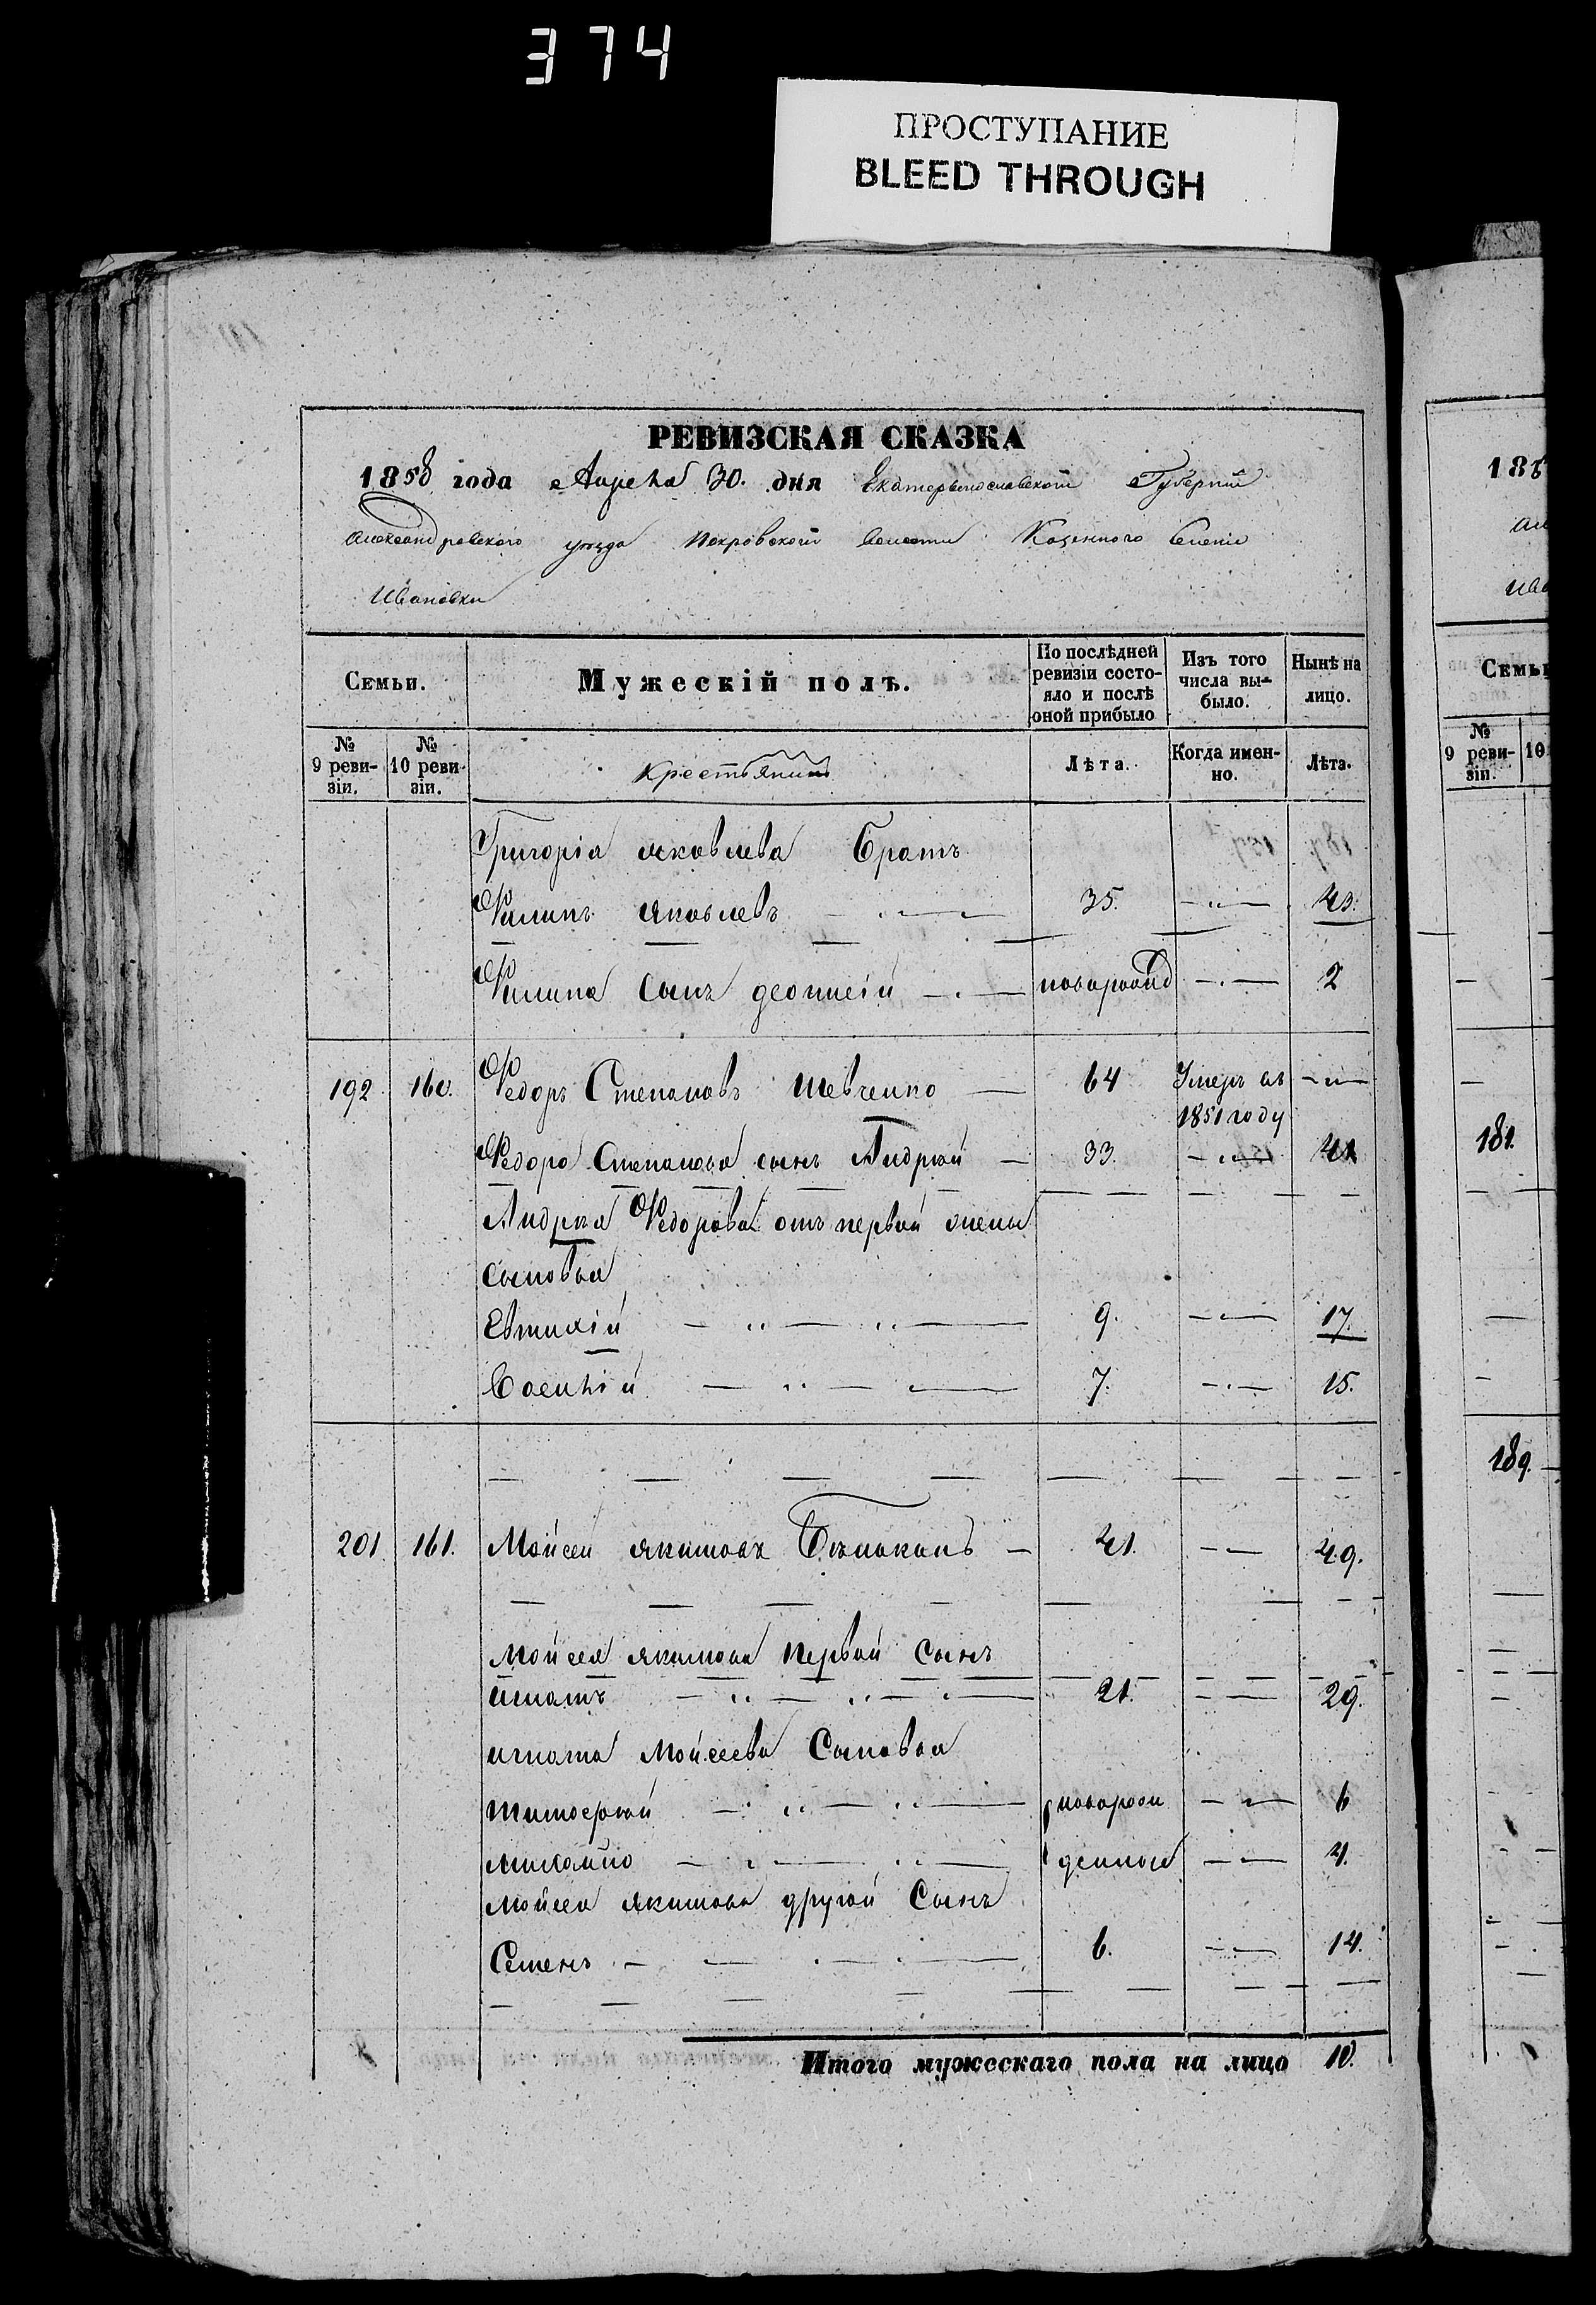 374
ПРОСТУПАНИЕ
BLEED THROUGH
РЕВИЗСКАЯ СКАЗКА
1858 года Апреля 30. дня Екатеринославской Губернии
Александровского уезда Покровской Волости Казенного Селенія
Ивановки
Семьи.
Мужескій полъ.
По послѣдней ревизіи состо-
яло и послѣ
оной прибыло
Изъ того
числа вы-
было.
Нынѣ на
лицо.
№
9 реви-
зіи.
№
10 реви-
зіи.
Крестьянинъ
Лѣта.
Когда имен-
но.
Лѣта.
Григорія Яковлева Братъ
Филипъ Яковлевъ 35. 43.
Филипа Сынъ 2
192 160. Федоръ Степановъ Шевченко 64 Умеръ въ
1851 году
Федора Степанова сынъ Андрей 33. 41
Андрея Федорова отъ первой жены
Сыновья
Евтихій 9. 17.
Василій 7. 15.
201. 161. Мойсей Якимовъ 41. 49.
Мойсея Якимова первой Сынъ
Игнатъ 21. 29.
Игната Мойсеева Сыновья
Тимофей новорож 6
денныя 4.
Мойсея Якимова другой Сынъ
Семенъ 6. 14.
Итого мужескаго пола на лицо 10.
187
Семьи
№
9 реви-
зіи.
10
181.
189.